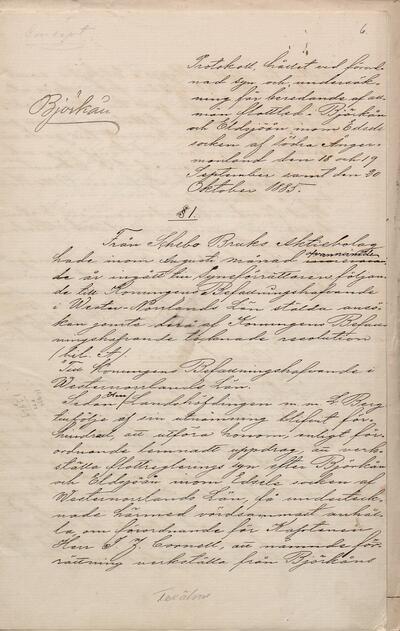 Concept
6.
Björkån
Protokoll, hållet vid förord-
nad syn och undersök-
ning för beredande af all-
män flottled i Björkån
och Eldsjöån inom Edsele
socken af södra Ånger-
manland den 18 och 19
September samt den 20
Oktober 1885.
§ 1.
Från Schebo Bruks Aktiebolag
hade inom Augusti månad
de år ingått till Syneförrättaren följan-
de till Konungens Befallningshafvande
i Wester-Norrlands Län stälda ansö-
kan jemte derå af Konungens Befall-
ningshafvande tecknade resolution
(bil. A).
Till Konungens Befallningshafvande i
Westernorrlands län.
Sedan Landshöfdingen m. m. Berg
till följe af sin utnämning blifvit för-
hindrad, att utföra honom, enligt för-
ordnande lemnadt uppdrag, att verk-
ställa flottregleringssyn efter Björkån
och Eldsjöån inom Edsele socken af
Westernorrlands Län, få underteck-
nade härmed vördsammast anhål-
la om förordnande för Kaptenen
Herr J. F. Cornell, att nämnde för-
rättning verkställa från Björkåns